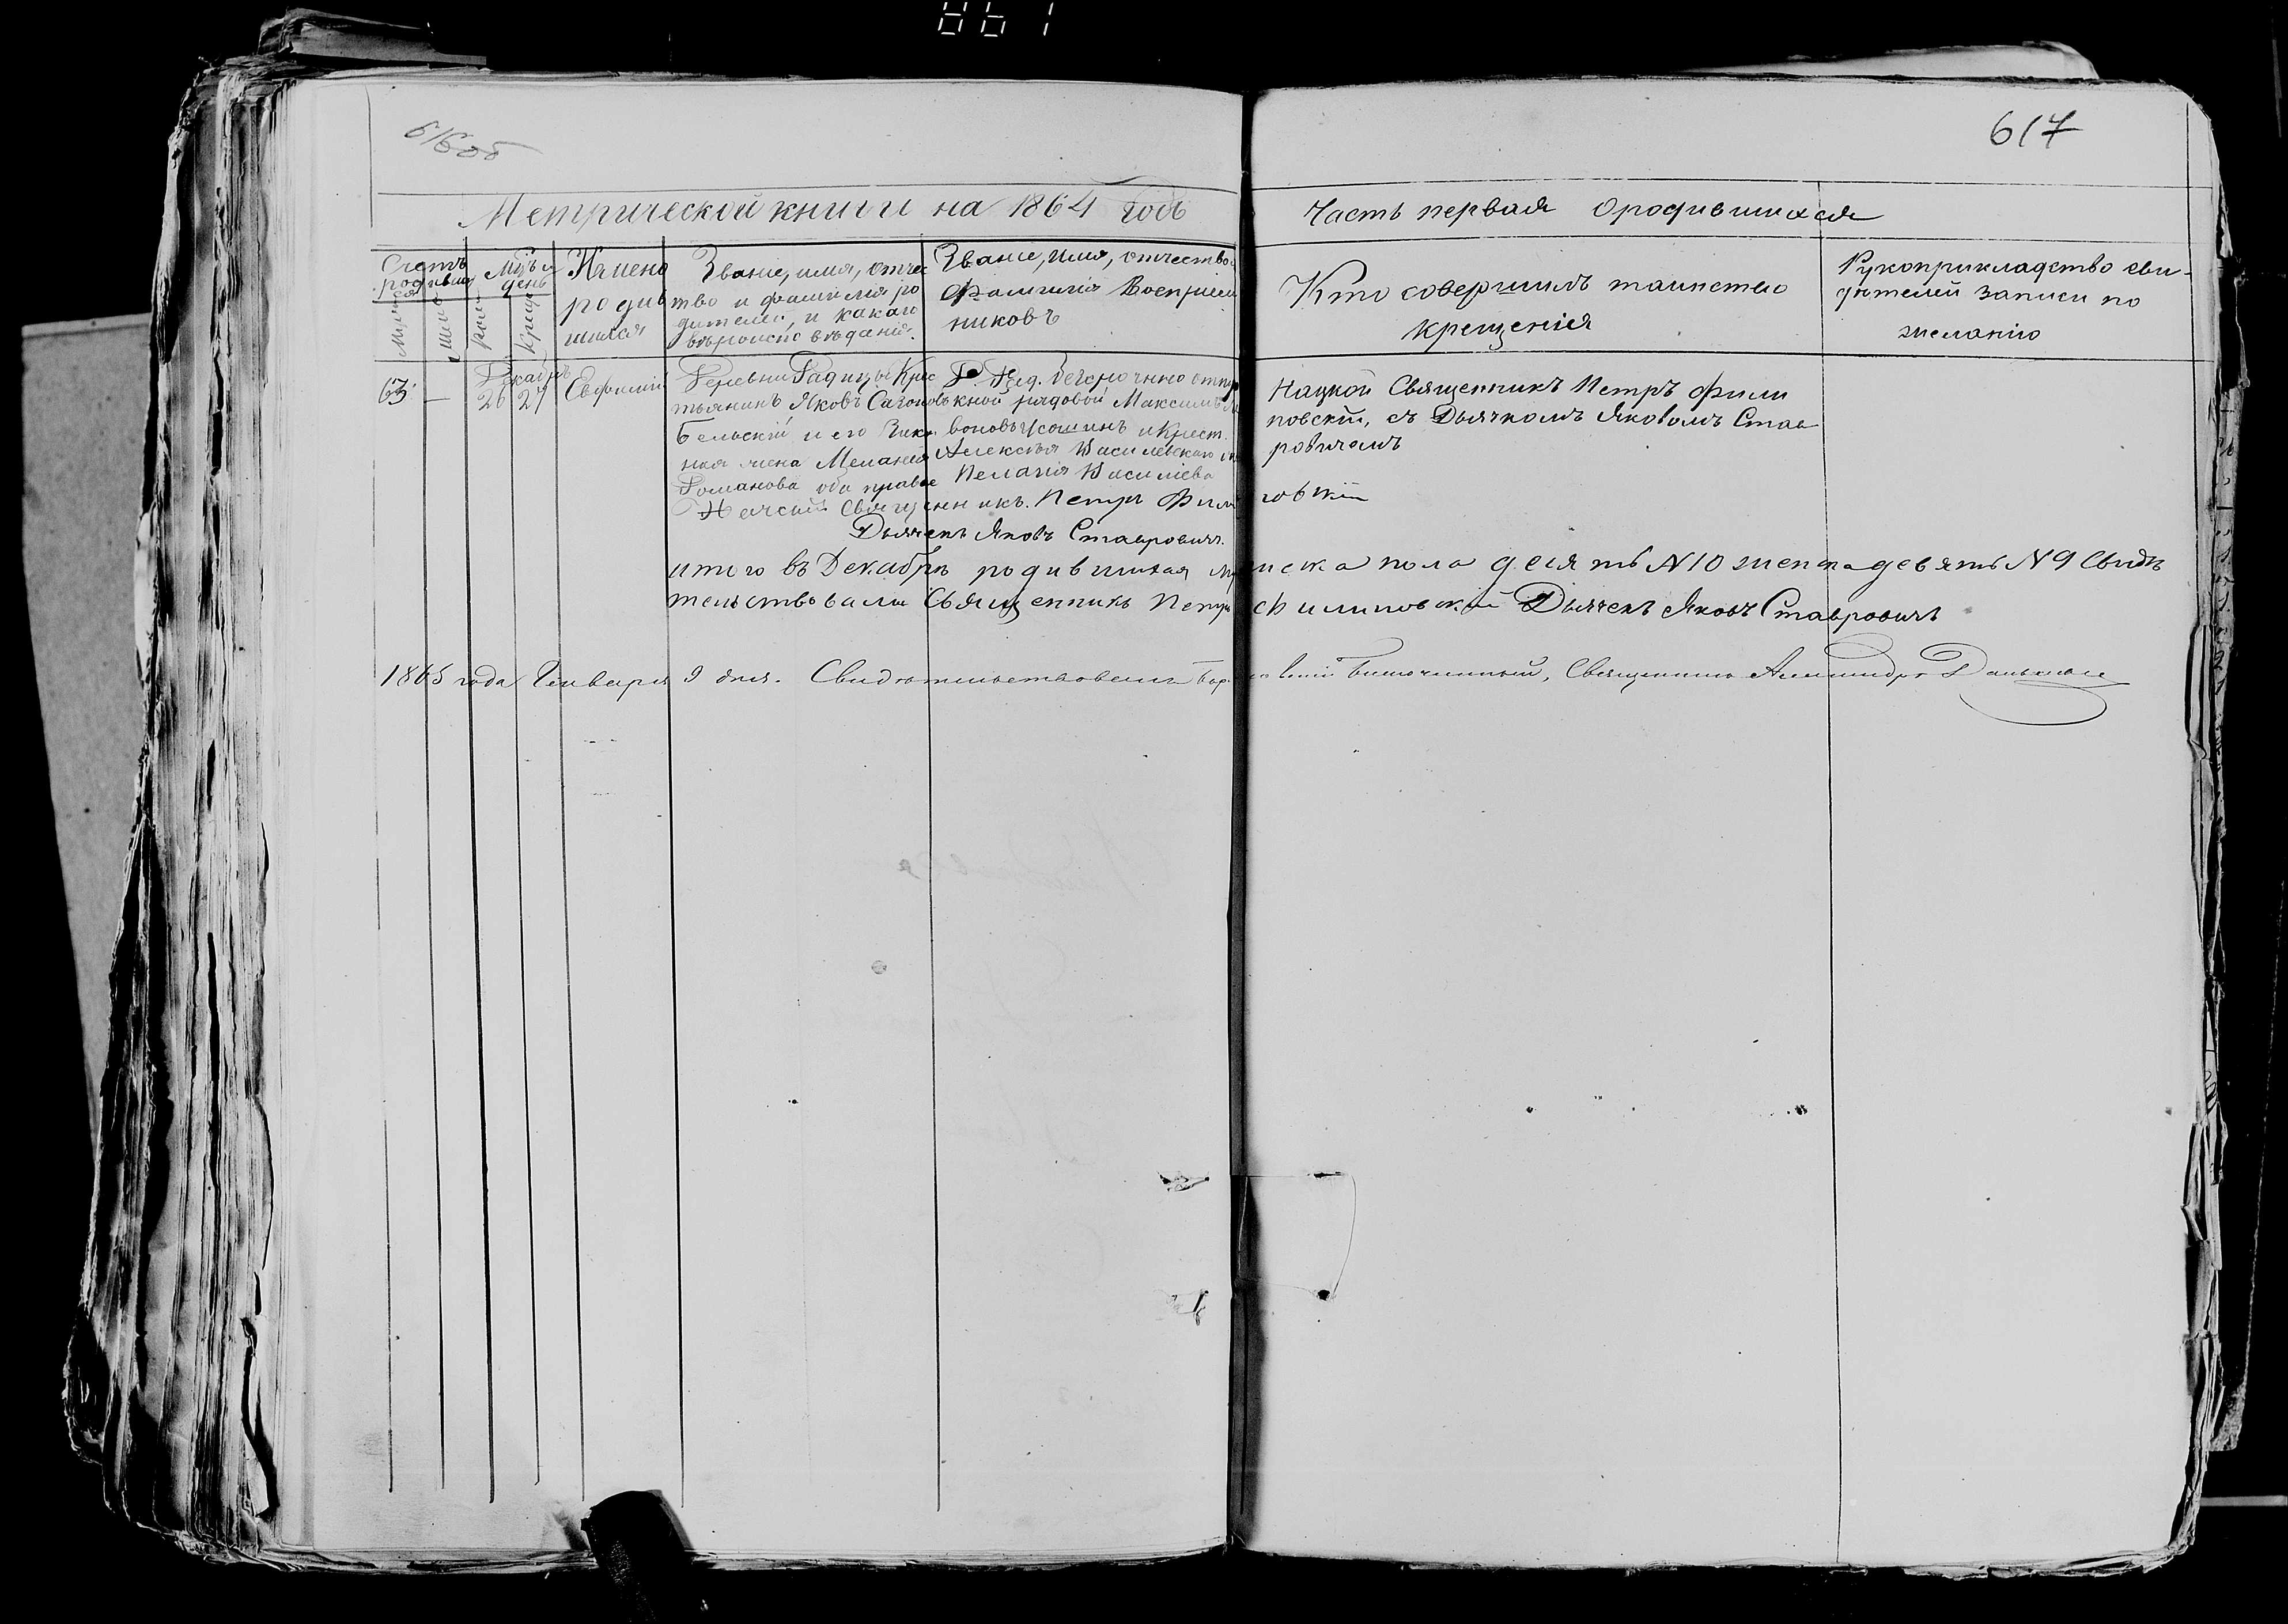 616об
617
Метрической книги на 1864 годъ
Часть первая о родившихся
Счетъ родившихся
Муж.
Жен.
Мсцъ и день
Рожд.
Крещ.
Имена
родив
шихся
Звание, имя, отчес
тво и фамилия ро
дителей, и какаго
вѣроисповѣданiя.
Званіе, имя, отчество
Фамилія Воспріем
никовъ
Кто совершилъ таинство
крещенія
Рукоприкладство сви-
дѣтелей записи по
желанію
Декабрь
63 — 26 27 Евфимій
Деревни Гадицы Крес
тьянинъ Яковъ
Бельскій и его Закон
ная жена Меланія
Романова оба правос
безсрочно отпу
скной рядовой Максимъ
и Крест.
Алексѣя Василевскаго
Пелагія Василіева
Нацкой Священникъ Петръ Фили
повскій, съ Дьячкомъ Яковомъ Став
ровичемъ
Священникъ Петръ Филиповскій
Дьячекъ Яковъ Ставровичъ
итого въ Декабрѣ родившихся мужеска пола десять N10 женска девять N9 Свидѣ
тельствовали Священникъ Петръ Филиповскій Дьячекъ Яковъ Ставровичъ
1865 года Генваря 9 дня. Свидѣтельствовалъ Благочинный, Священникъ Александръ